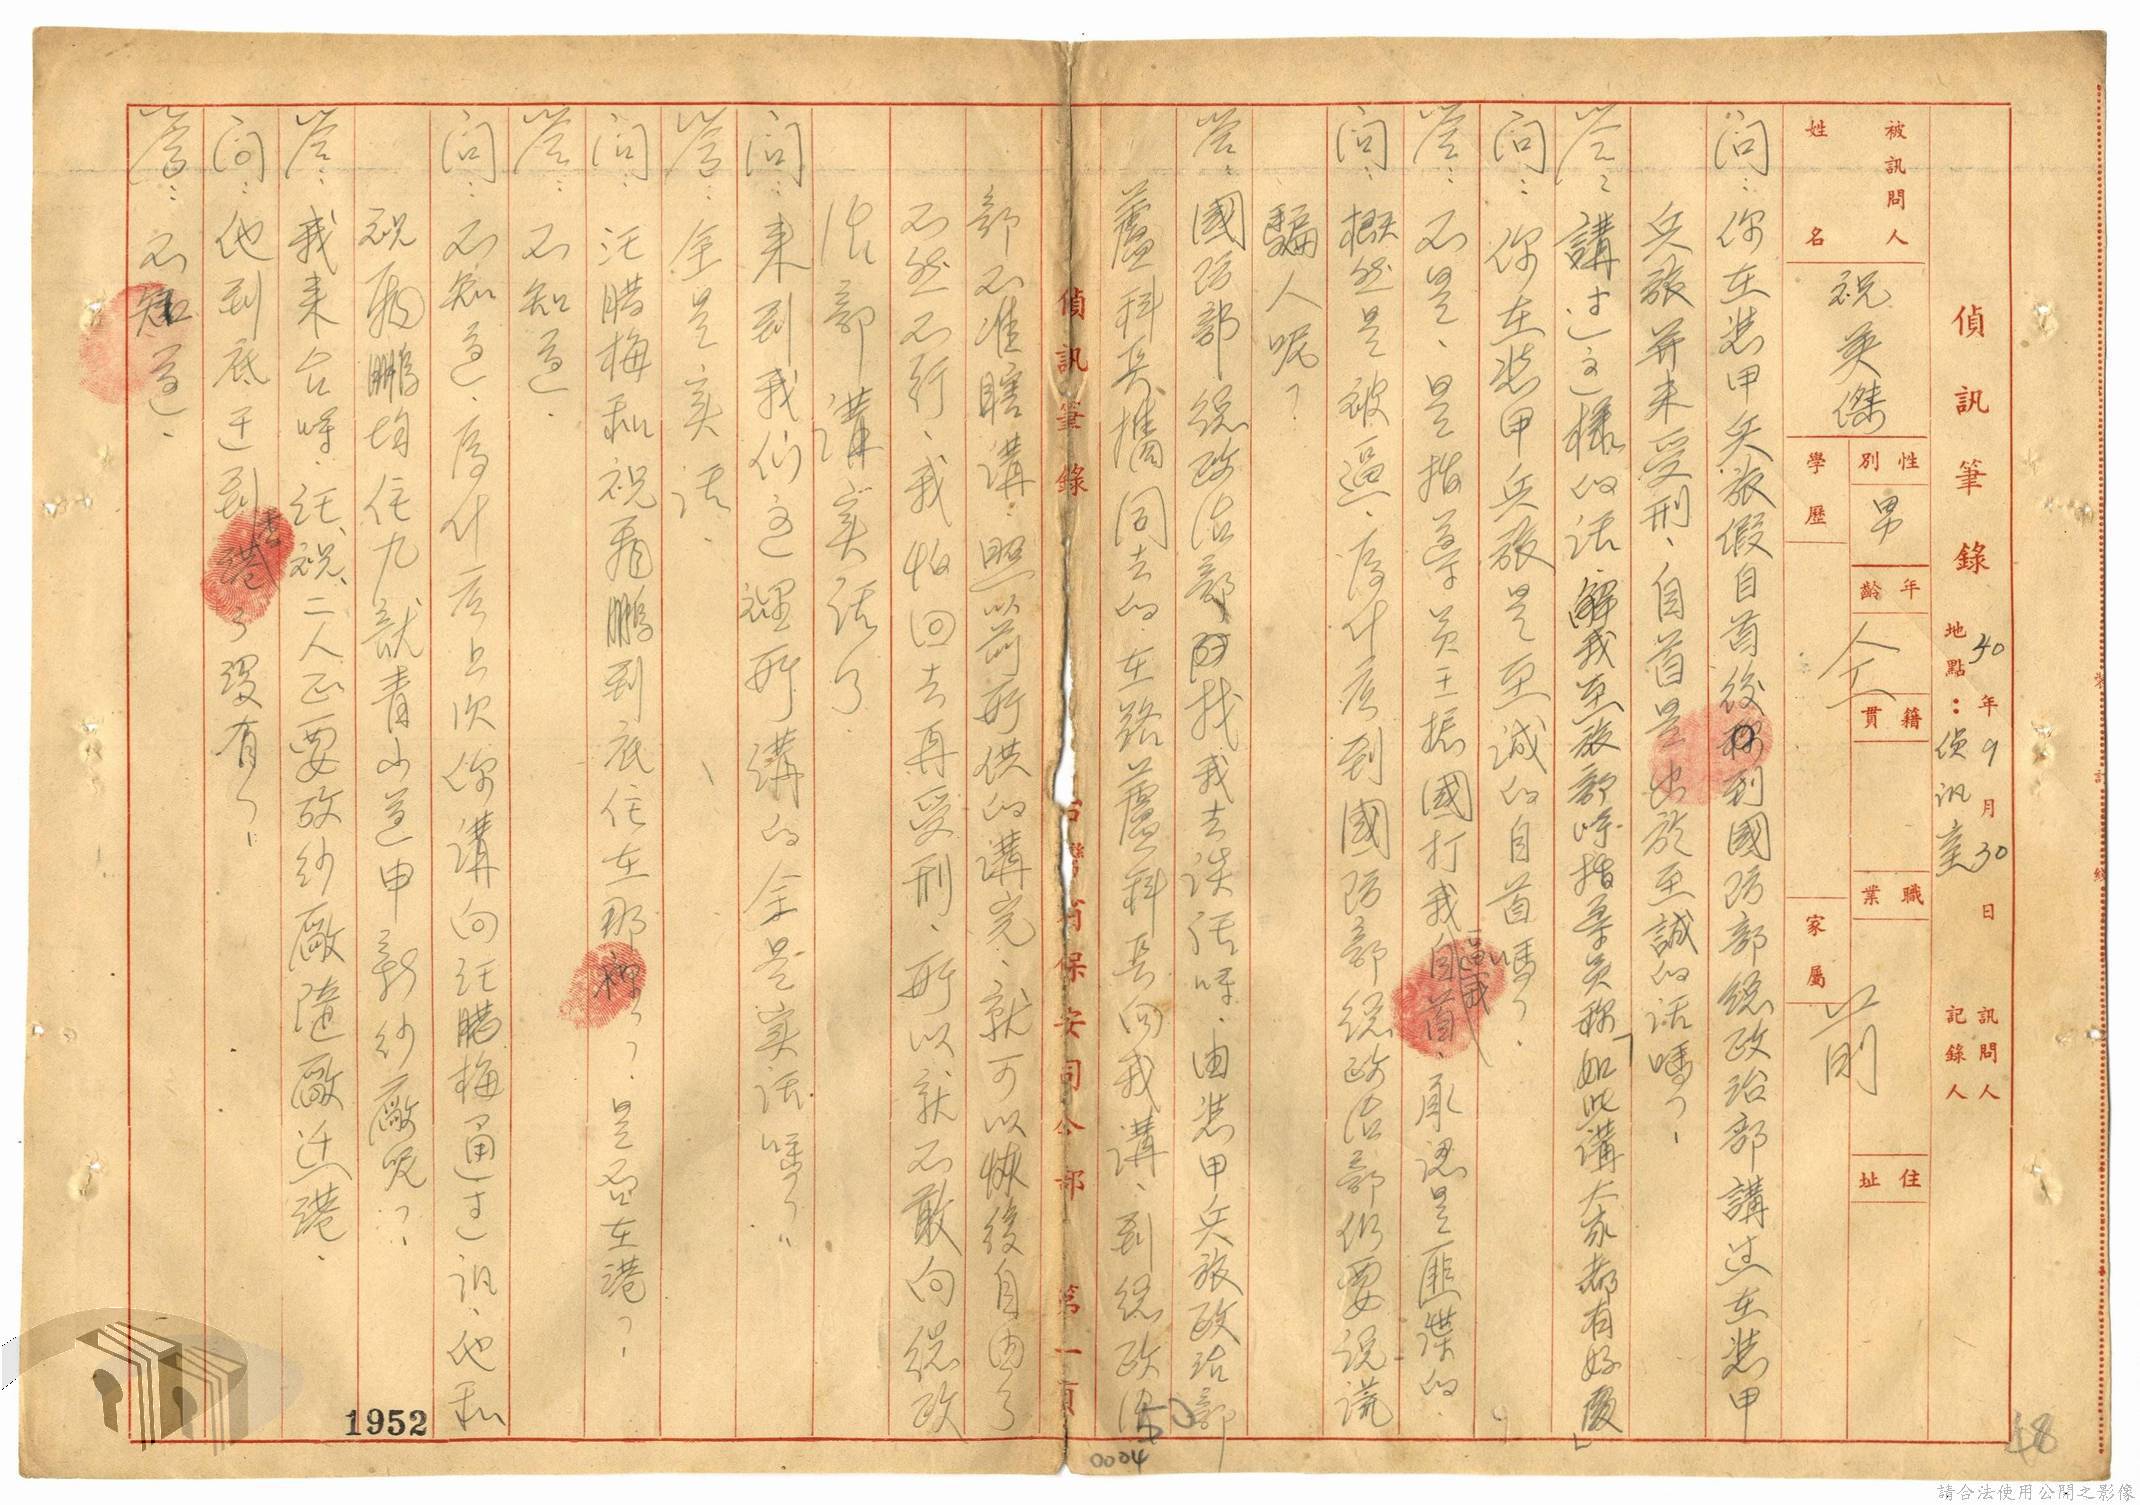 偵訊筆錄
40年9月30日
地點：偵訊室
訊問人
記錄人
被訊問人姓名
祝英傑
性別
男
年齡
籍貫
職業
住址
學歷
全
家屬
前
問：你在裝甲兵旅假自首後到國防部總政治部講過在裝甲
兵旅並未受刑、自首是出於至誠的話嗎？
答：講过这樣的话、解我至旅部時指导員称「如此講大家都有好處」
問：你在裝甲兵旅是至誠的自首嗎？
答：不是、是指導員王振國打我逼我自首、承認是匪諜的、
問：概然是被逼、為什麼到國防部總政治部仍要說謊
騙人呢？
答：國防部總政治部找我去談話時、由裝甲兵旅政治部
蘆科長攜同去的、在路蘆科長向我講、到總政治
部不准瞎講：照以前所供的講完、就可以恢復自由了
不然不行、我怕回去再受刑、所以就不敢向總政
治部講实话了
問：来到我们这裡所講的全是实话嗎？
答：全是实话、
問：汪腊梅和祝翔鵬到底住在那裡？是否在港？
答：不知道、
問：不知道、為什麼上次你講向汪腊梅通过訊、他和
祝翔鵬均住九龍青山道申新紗廠呢？
答：我来台時、汪、祝、二人正要改紗廠隨廠迁港、
問：他到底迁到港去了沒有？
答：不知道、
偵訊筆錄
台灣省保安司令部
第一頁
1952
0004
50
48
裝訂線
請合法使用公開之影像